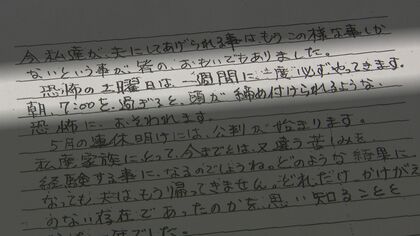 今私達が、夫にしてあげられる事はもうこの様な事しか
ないという事が皆の、おもいでもありました。
恐怖の土曜日は一週間に一度必ずやってきます。
朝、7:00を過ぎると、頭が締め付けられるような、
恐怖に、おそわれます。
5月の連休明けには、公判が始まります。
私達家族にとって、今までとは、又違う苦しみを
経験する事に、なるのでしょうね。どのような結果に
なっても夫は、もう帰ってきません。どれだけかけがえ
のない存在であったのかを、思い知ることと